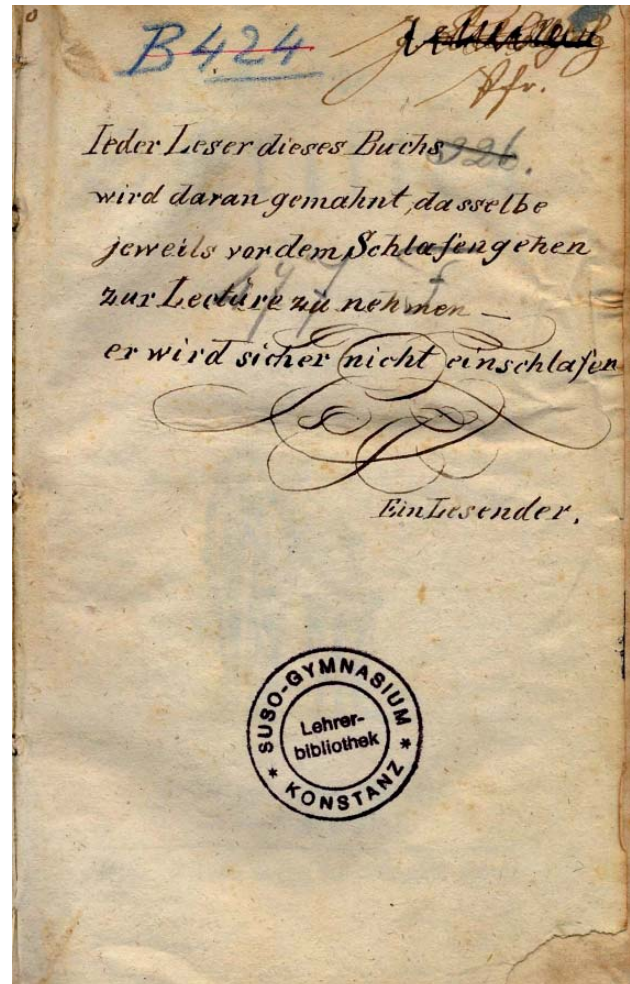 B 424
Pfr.
Jeder Leser dieses Buchs
326.
wird daran gemahnt, dasselbe
jeweils vor dem Schlafengehen
zur Lectüre zu nehmen —
er wird sicher nicht einschlafen
Ein Lesender.
SUSO-GYMNASIUM
Lehrer-
bibliothek
* KONSTANZ *